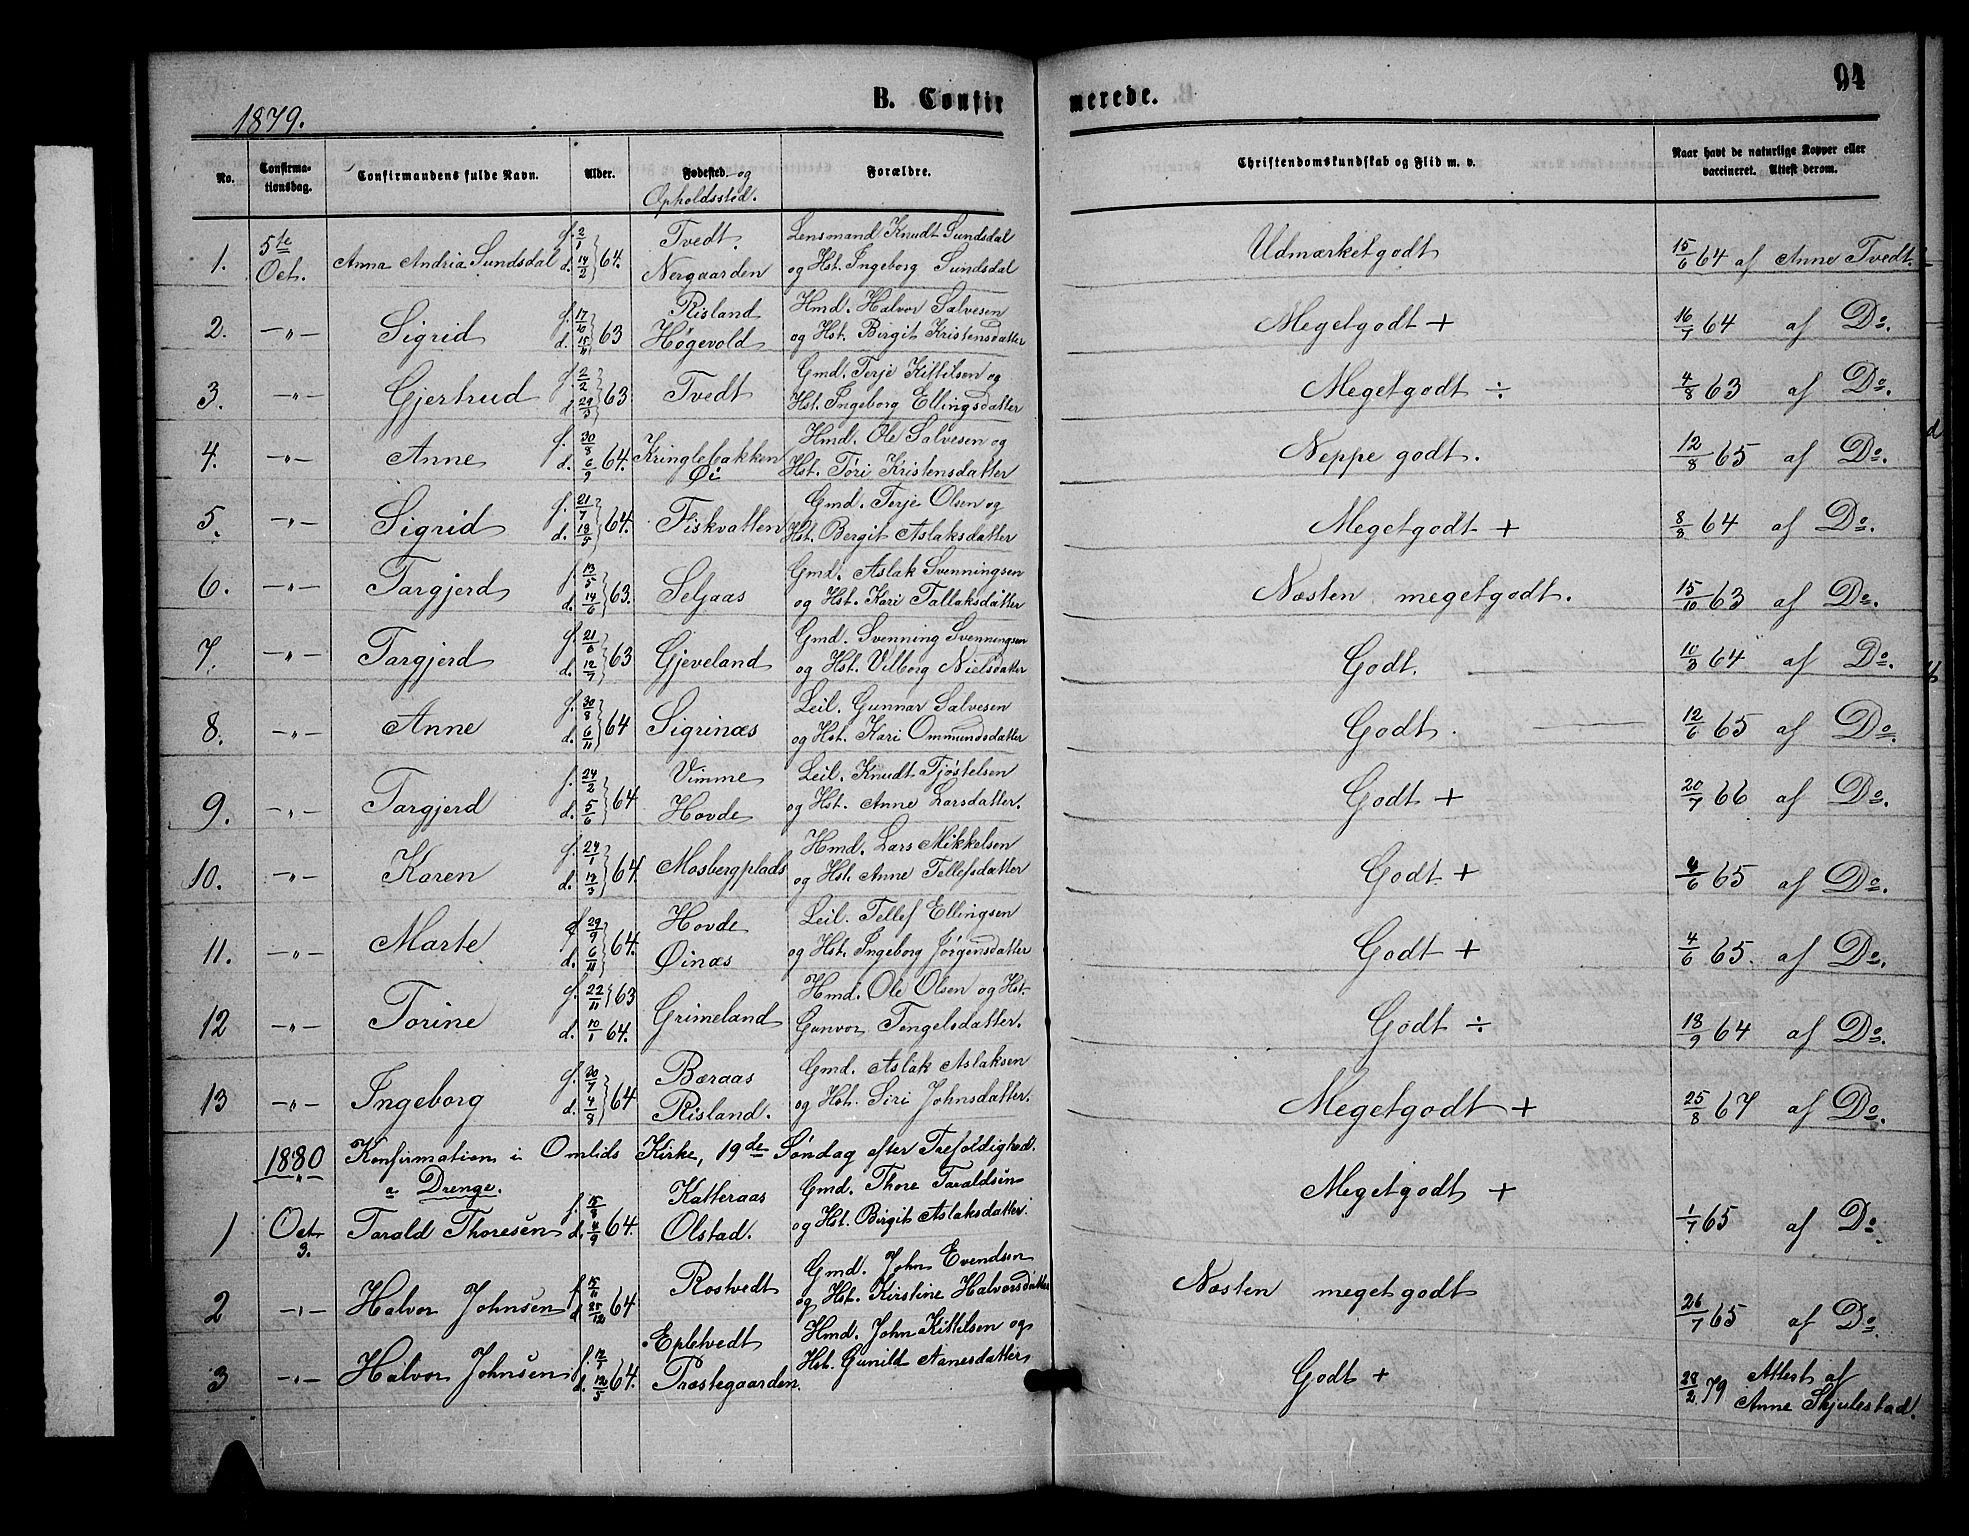 1879.
B. Confirmerede.
94
No.
Confirmationsdag.
Confirmandens fulde Navn.
Alder.
Fødested og Opholdssted.
Forældre.
Christendomskundskab og Flid m. v.
Naar havt de naturlige Kopper eller vaccineret. Attest derom.
1. 5te Oct. Anna Andria Sundsdal f. 2/1 d. 14/2 64. Tvedt. Nergaarden Lensmand Knudt Sundsdal og Hst. Ingeborg Sundsdal Udmærketgodt 15/6 64 af Anne Tvedt.
2. -„- Sigrid f. 17/10 d. 15/11 63 Risland Høgevold Hmd. Halvor Salvesen og Hst. Birgit Kristensdatter Megetgodt + 16/7 64 af Do.
3. -„- Gjertrud f. 2/2 d. 29/3 63 Tvedt Gmd. Terje Kittilsen og Hst. Ingeborg Ellingsdatter Megetgodt ÷ 4/8 63 af Do.
4. -„- Anne f. 30/8 d. 6/9 64. Kringlebakken Øi Hmd. Ole Salvesen og Hst. Tóri Kristensdatter Neppe godt. 12/8 65 af Do.
5. -„- Sigrid f. 21/7 d. 18/5 64. Fiskvatten Gmd. Terje Olsen og Hst. Bergit Aslaksdatter Megetgodt + 8/8 64 af Do.
6. -„- Targjerd f. 13/5 d. 14/6 63. Seljaas Gmd. Aslak Svenningsen og Hst. Kari Tallaksdatter Næsten megetgodt. 15/10 63 af Do.
7. -„- Targjerd f. 21/6 d. 12/7 63 Gjeveland Gmd. Svenning Svenningsen og Hst. Vilborg Nielsdatter Godt. 10/3 64 af Do.
8. -„- Anne f. 30/8 d. 6/11 64 Sigrinæs Leil. Gunnar Salvesen og Hst. Kari Ommundsdatter Godt. 12/6 65 af Do.
9. -„- Targjerd f. 24/2 d. 5/6 64 Vimme Hovde Leil. Knudt Tjøstelsen og Hst. Anne Larsdatter. Godt + 20/7 66 af Do.
10. -„- Karen f. 24/1 d. 13/3 64. Mosbergplads Hmd. Lars Mikkelsen og Hst. Anne Tellefsdatter Godt + 4/6 65 af Do.
11. -„- Marte f. 29/9 d. 6/11 64. Hovde Øinæs Leil. Tellef Ellingsen og Hst. Ingeborg Jørgensdatter Godt + 4/6 65. af Do.
12 -„- Torine f. 22/11 63 d. 10/1 64. Grimeland Hmd. Ole Olsen og Hst. Gunvor Tengelsdatter. Godt ÷ 18/9 64 af Do.
13 -„- Ingeborg f. 30/7 d. 4/8 64 Bæraas Risland. Gmd. Aslak Aslaksen og Hst. Siri Johnsdatter. Megetgodt + 25/8 67 af Do.
1880 Konfirmation i Omlids Kirke, 19de Søndag efter Trefoldighed.
a Drenge.
1 Oct 3. Tarald Thoresen f. 15/8 d. 4/9 64. Katteraas Olstad. Gmd. Thore Taraldsen og Hst. Birgit Aslaksdatter. Megetgodt + 1/7 65 af Do.
2 -„- Halvor Johnsen f. 15/11 d. 25/12 64 Rostvedt Gmd. John Evendsen og Hst. Kirstine Halvorsdatter Næsten megetgodt 26/7 65 af Do.
3 -„- Halvor Johnsen f. 12/1 d. 12/5 64. Epletvedt Præstegaarden. Hmd. John Kittilsen og Hst. Gunild Aanesdatter Godt + 28/2 79 Attest af Anne Skjulestad.